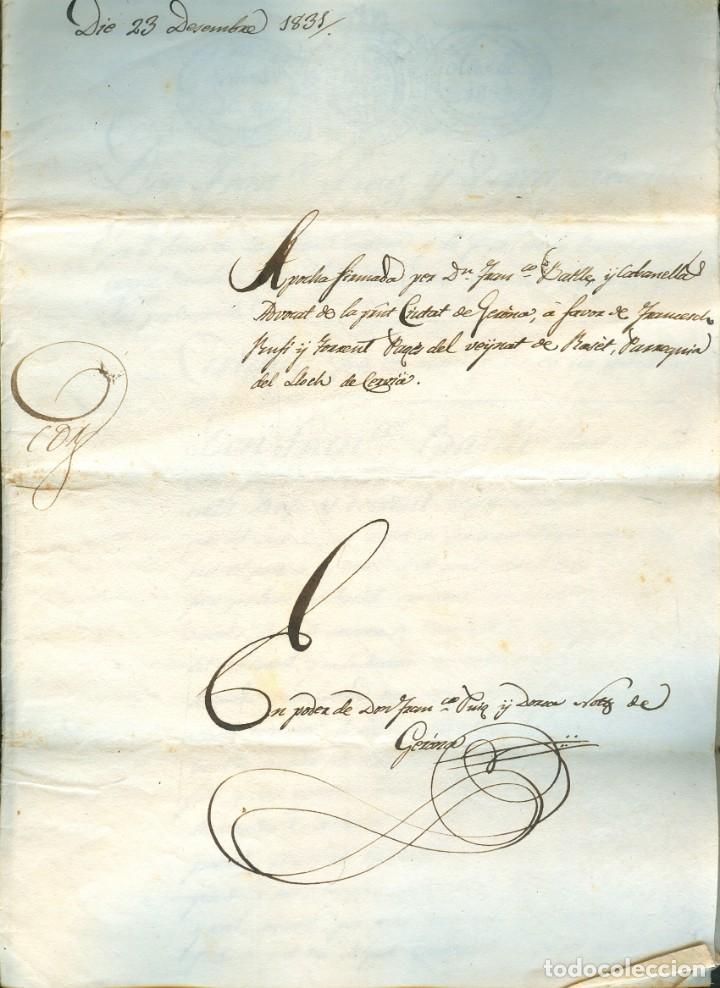 Die 23 Desembre 1831/.
Apocha firmada per Dn. Franco. Batlle y Cabanellas
Advocat de la pñt Ciutat de Gerona, á favor de Francesch
Rufí y Torrent Pagès del veÿnat de Rosét, Parroquia
del Lloch de Cerviá.
En poder de Don Franco. Puig y Dorca Notí de
Gerona
todocoleccion